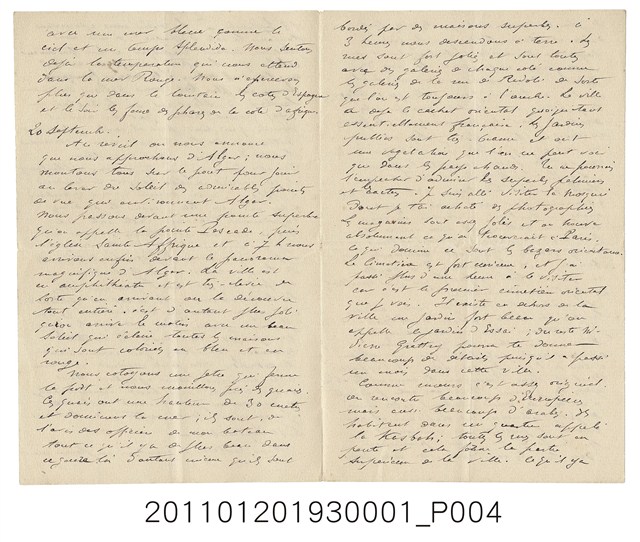 avec une mer bleue comme le
ciel et un temps splendide. Nous sentons
déjà la température qui nous attend
dans la mer Rouge. Nous n'apercevons
plus que dans le lointain les côtes d'Espagne
et le soir les feux des phares de la côte d'afrique.
20 Septembre.
Au réveil on nous annonce
que nous approchons d'Alger; nous
montons tous sur le pont pour jouir
au lever du soleil des admirables points
de vue qui environnent Alger.
Nous passons devant une pointe superbe
qu'on appelle la pointe Pescade, puis
l'église Sainte Affrique et à 7 h nous
arrivons enfin devant le panorama
magnifique d'Alger. La ville est
en amphithéâtre et est très élevée de
sorte qu'en arrivant on la découvre
tout entière. c'est d'autant plus joli
qu'on arrive le matin avec un beau
soleil qui éclaire toutes les maisons
qui sont coloriées en bleu et en
rouge.
Nous cotoyons une jetée qui ferme
le port et nous mouillons près des quais.
Ces quais ont une hauteur de 30 mètres
et dominent la mer; ils sont, de
l'avis des officiers de mon bateau
tout ce qu'il y a de plus beau dans
ce genre là d'autant mieux qu'ils sont
bordés par des maisons superbes. à
3 heures nous descendons à terre. Les
rues sont fort jolies et sont toutes
avec des galeries de chaque côté comme
les galeries de la rue de Rivoli de sorte
que l'on est toujours à l'ombre. La ville
a déjà le cachet oriental quoiqu'étant
essentiellement française. les jardins
publics sont très beaux et ont
une végétation que l'on ne peut voir
que dans les pays chauds. Tu ne pourrais
t'empêcher d'admirer les superbes palmiers
et
Dont je t'ai acheté des photographies
les magasins sont assez jolis et on trouve
absolument ce qu'on trouverait à Paris.
ce qui domine ce sont les bazars orientaux.
Le cimetière est fort curieux, et j'ai
passé plus d'une heure à le visiter
car c'est le premier cimetière oriental
que je vois. Il existe en dehors de la
ville un jardin fort beau qu'on
appelle le jardin d'Essai; du reste
pourra te donner
beaucoup de détails puisqu'il a passé
un mois dans cette ville.
Comme moeurs c'est assez original.
on rencontre beaucoup d'Européens
mais aussi beaucoup d'arabes. Ils
habitent dans un quartier appelé
la Kasbah; toutes les rues sont en
pente et cela forme la partie
supérieure de la ville. Ce qu'il y a
201101201930001_P004